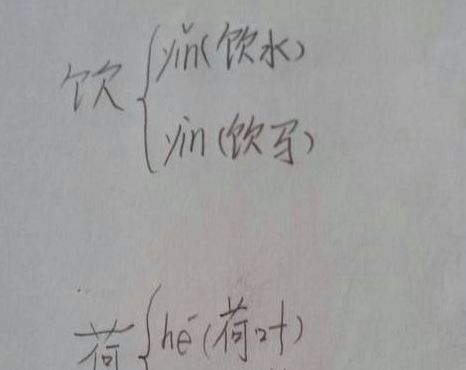 yǐn(饮水)
饮{
yin(饮马)
荷{hē(荷叶)